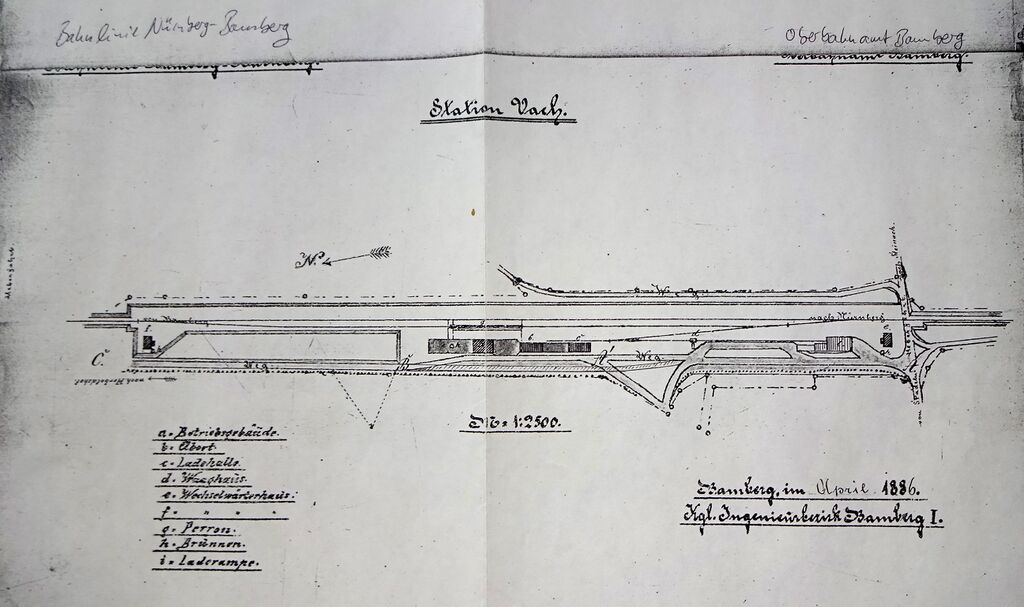 Bahnlinie Nürnberg-Bamberg
Oberbahnamt Bamberg
Oberbahnamt Bamberg.
Station Vach.
N.
von Bamberg
nach Nürnberg
Weg
Weg
M = 1:2500.
a = Betriebsgebäude.
b = Abort.
c = Ladehalle.
d = Waaghaus.
e = Wechselwärterhaus.
f = " " "
g = Perron.
h = Brunnen.
i = Laderampe.
Bamberg, im April 1886.
Kgl. Ingenieurbezirk Bamberg I.